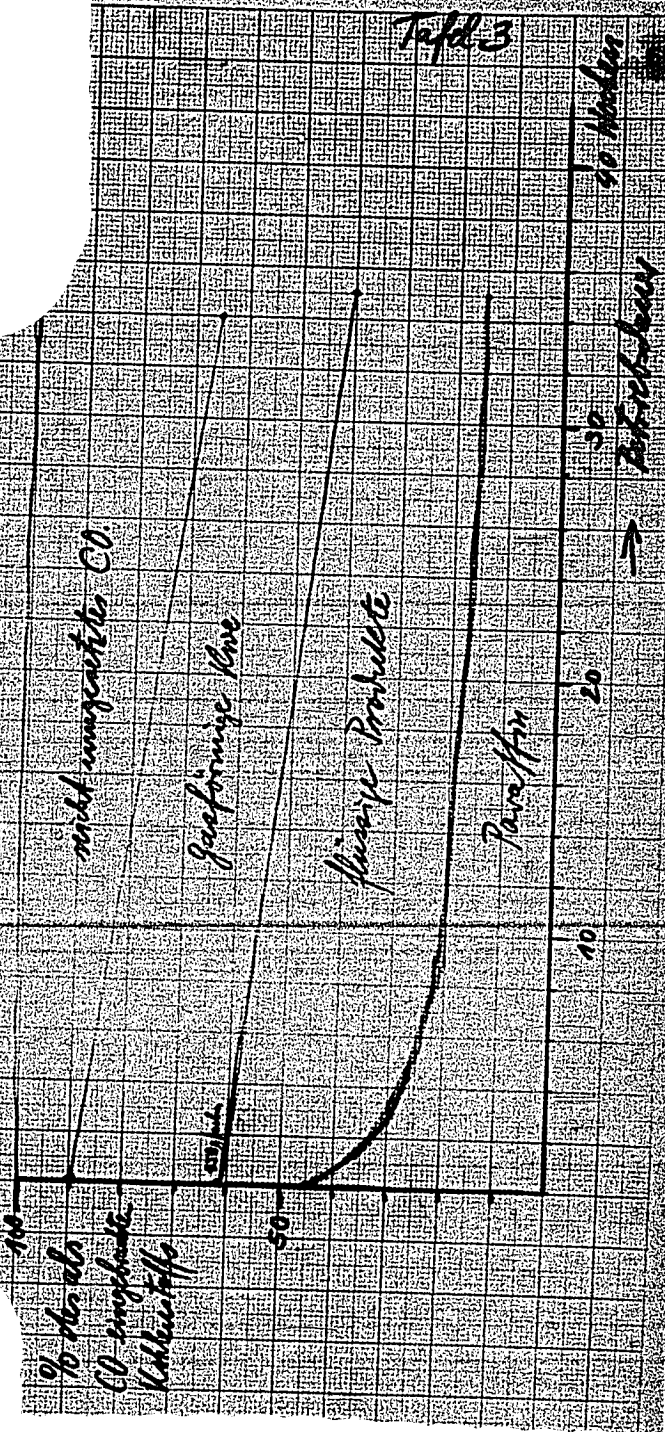 Tafel 3
% des als
CO eingebrachten
Kohlenstoffs
100
50
nicht umgesetztes CO.
gasförmige Kwe
flüssige Produkte
Paraffin
10
20
30
40 Wochen
→ Betriebsdauer